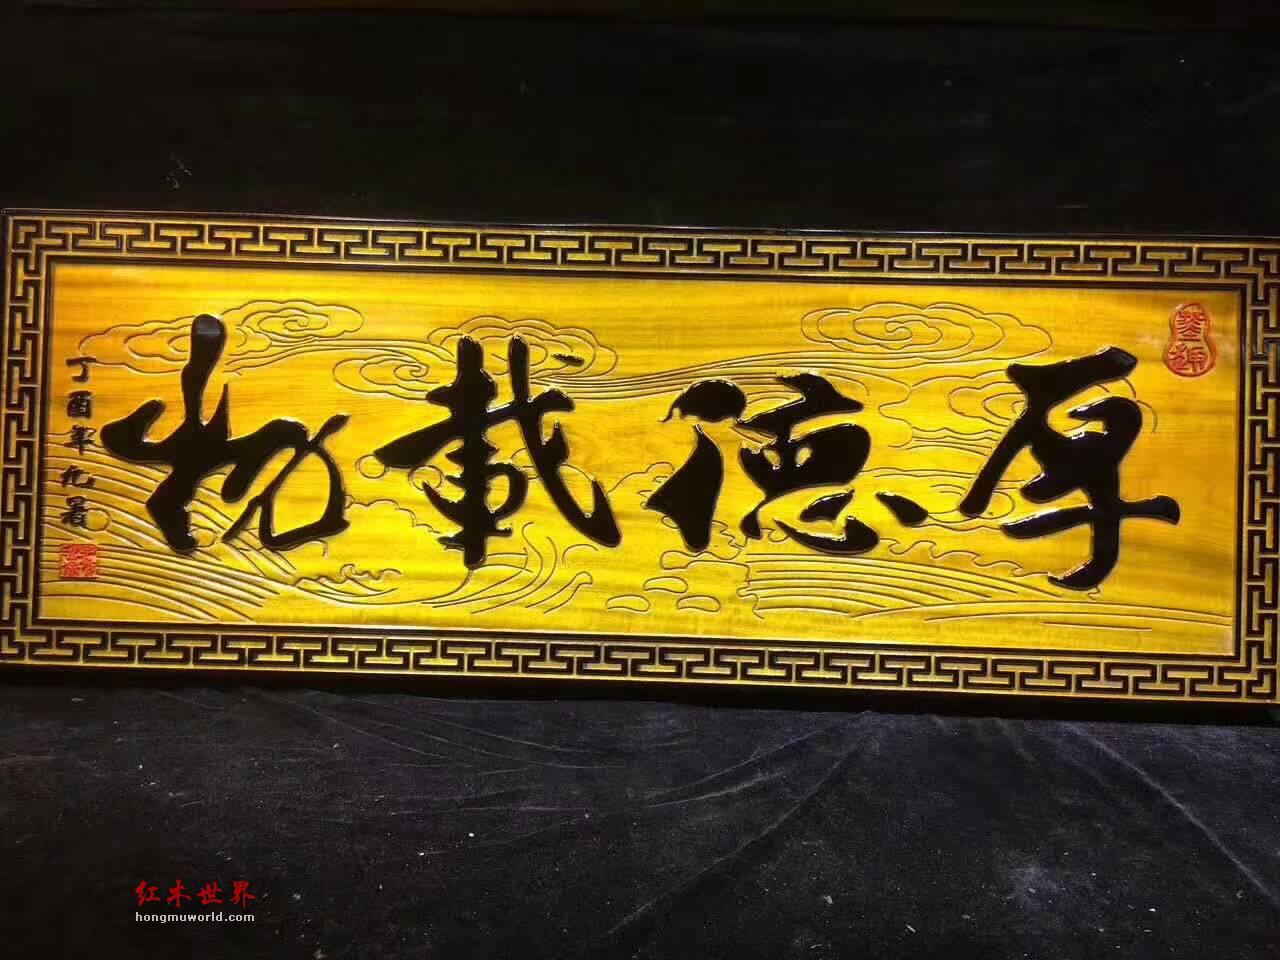 厚德載物
丁酉年
红木世界
hongmuworld.com